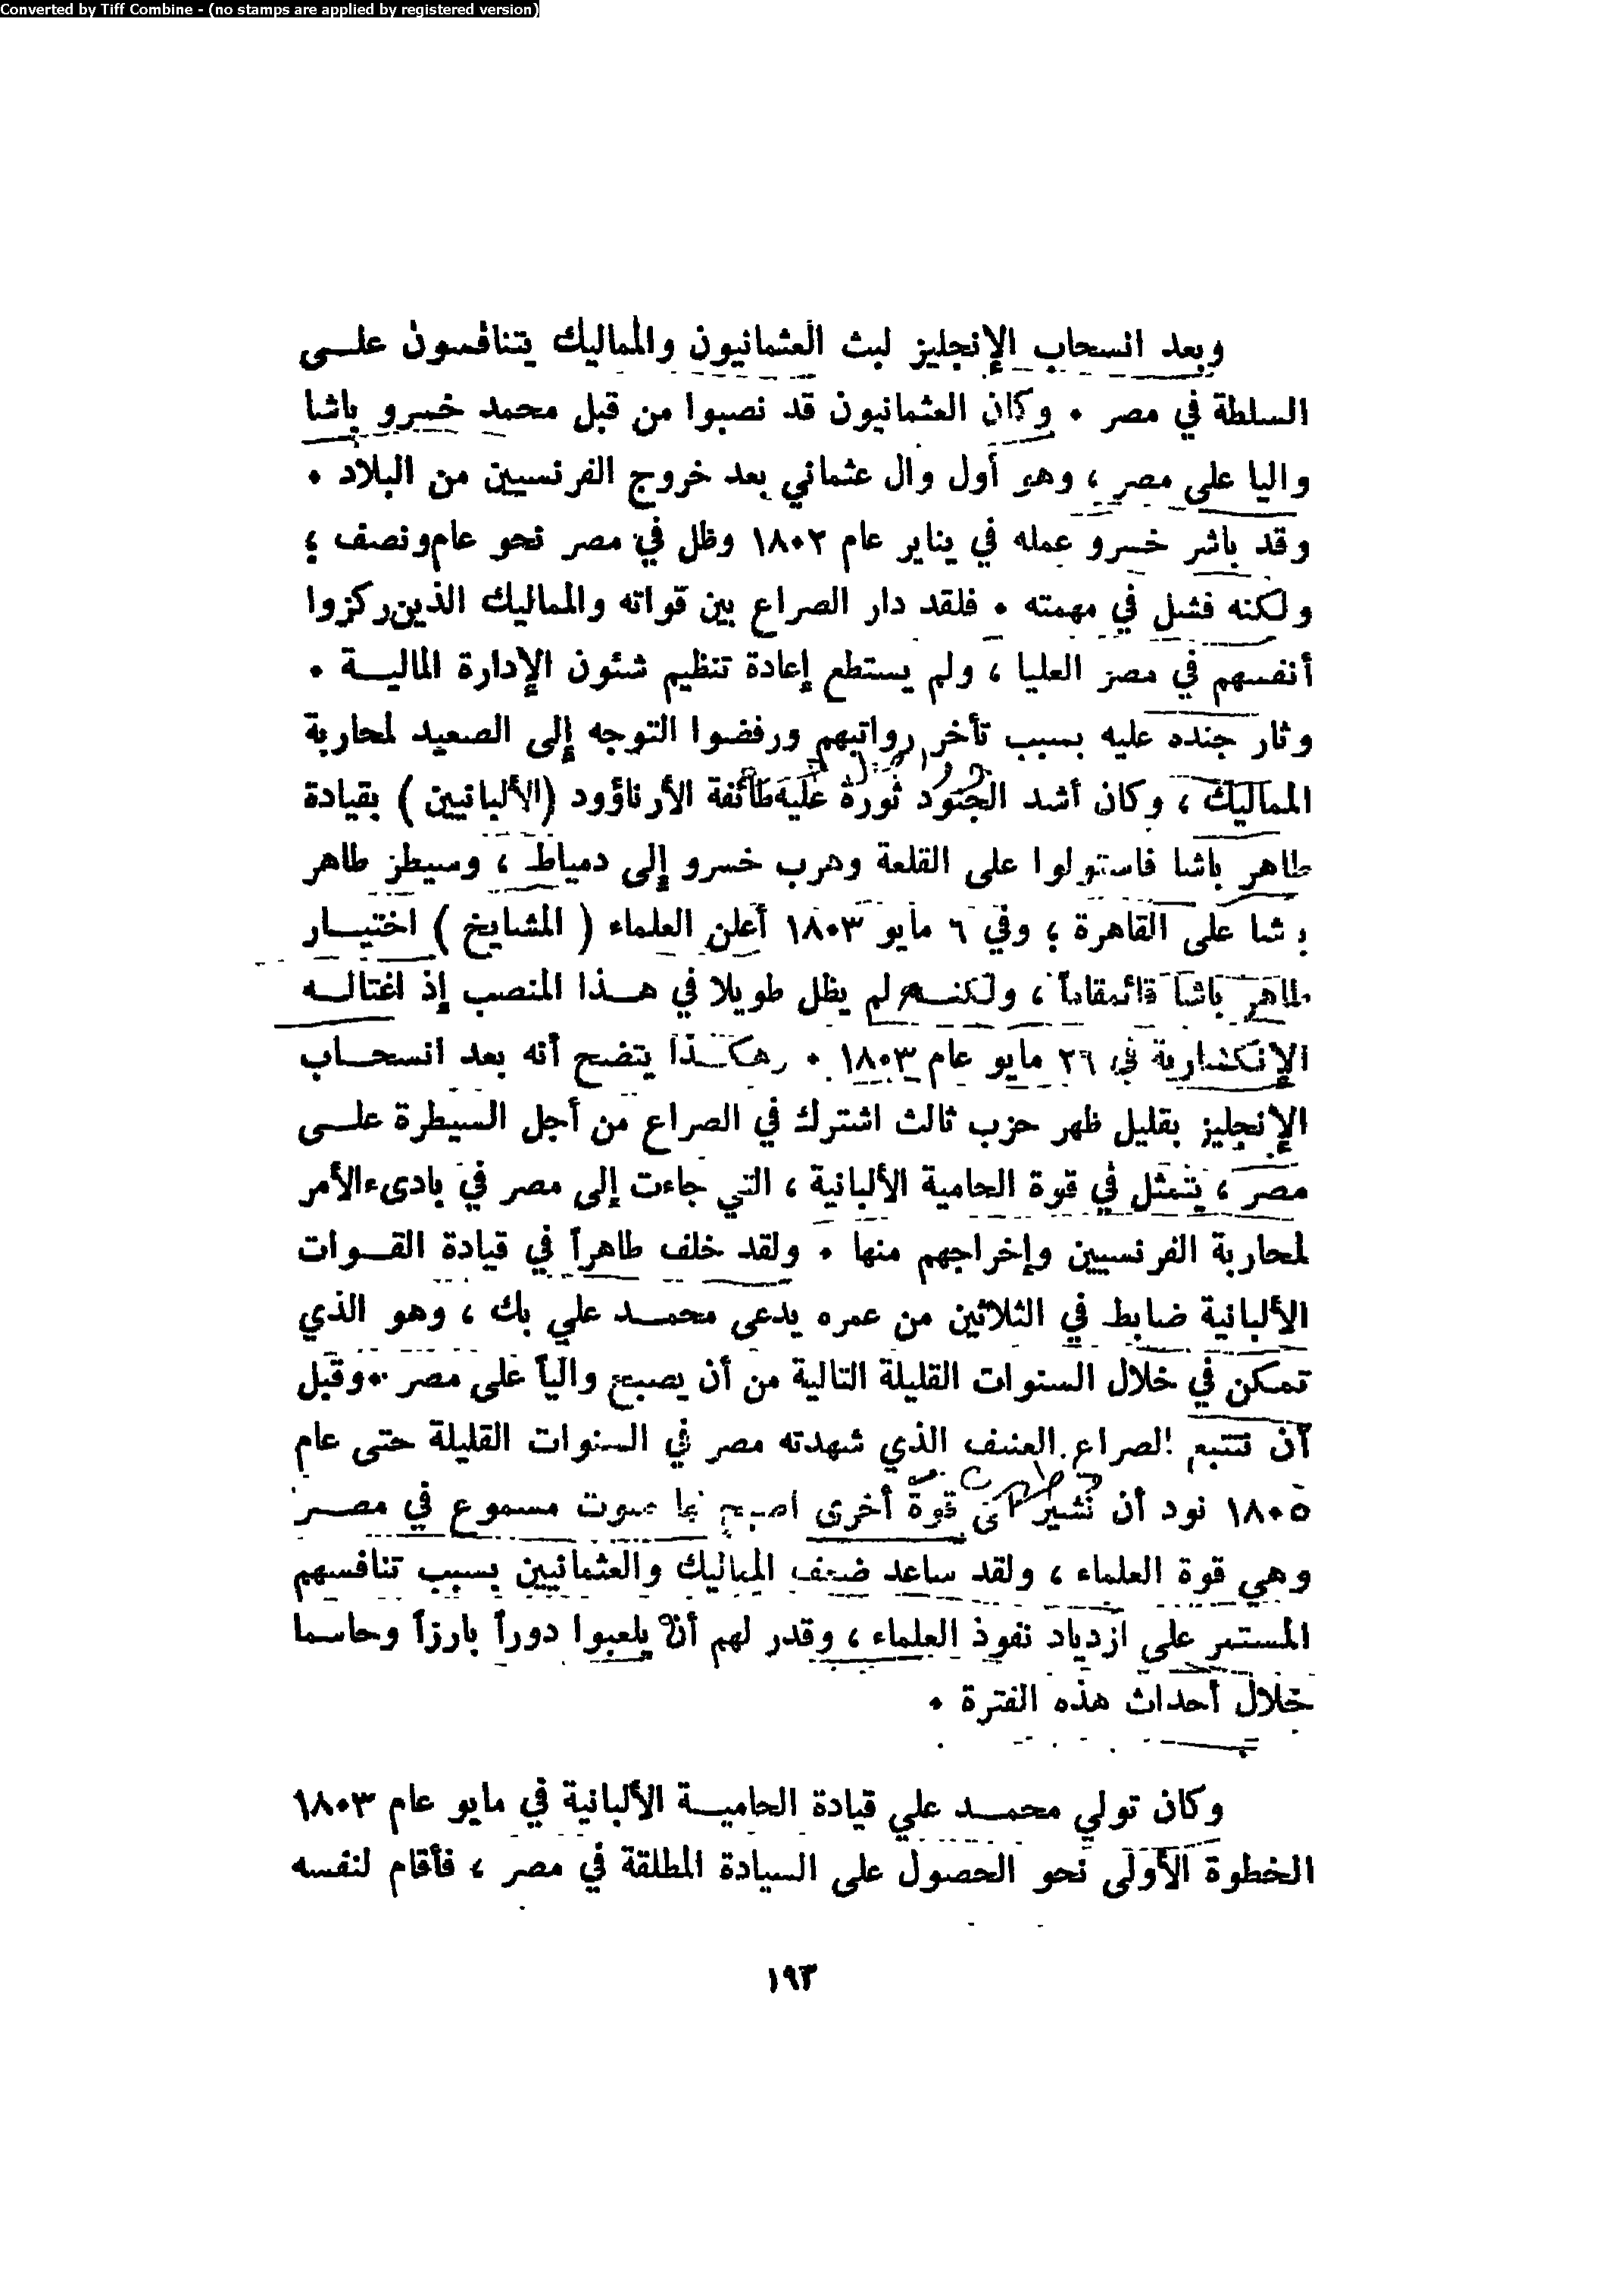 Converted by Tiff Combine - (no stamps are applied by registered version)
وبعد انسحاب الإنجليز لبث العثمانيون والمماليك يتنافسون علـــى
السلطة في مصر . وكان العثمانيون قد نصبوا من قبل محمد خسرو باشا
واليا على مصر ، وهو أول وال عثماني بعد خروج الفرنسيين من البلاد .
وقد باشر خسرو عمله في يناير عام ١٨٠٢ وظل في مصر نحو عام ونصف ؛
ولكنه فشل في مهمته . فلقد دار الصراع بين قواته والمماليك الذين ركزوا
أنفسهم في مصر العليا ، ولم يستطع إعادة تنظيم شئون الإدارة الماليــة .
وثار جنده عليه بسبب تأخر رواتبهم ورفضوا التوجه إلى الصعيد لمحاربة
المماليك ، وكان أشد الجنود ثورة عليه طائفة الأرناؤود (الألبانيين) بقيادة
طاهر باشا فاستولوا على القلعة وهرب خسرو إلى دمياط ، وسيطر طاهر
باشا على القاهرة ؛ وفي ٦ مايو ١٨٠٣ أعلن العلماء ( المشايخ ) اختيــار
طاهر باشا قائمقاماً ، ولكنــه لم يظل طويلا في هــذا المنصب إذ اغتالــه
الإنكشارية في ٢٦ مايو عام ١٨٠٣ . وهكــذا يتضح أنه بعد انسحــاب
الإنجليز بقليل ظهر حزب ثالث اشترك في الصراع من أجل السيطرة علــى
مصر ، يتمثل في قوة الحامية الألبانية ، التي جاءت إلى مصر في بادىء الأمر
لمحاربة الفرنسيين وإخراجهم منها . ولقد خلف طاهراً في قيادة القــوات
الألبانية ضابط في الثلاثين من عمره يدعى محمــد علي بك ، وهو الذي
تمكن في خلال السنوات القليلة التالية من أن يصبح والياً على مصر .. وقبل
أن نتتبع الصراع العنيف الذي شهدته مصر في السنوات القليلة حتى عام
١٨٠٥ نود أن نشير إلى قوة أخرى اصبح لها صوت مسموع في مصــر
وهي قوة العلماء ، ولقد ساعد ضعف المماليك والعثمانيين بسبب تنافسهم
المستمر على ازدياد نفوذ العلماء ، وقدر لهم أن يلعبوا دوراً بارزاً وحاسما
خلال أحداث هذه الفترة .
وكان تولي محمــد علي قيادة الحاميــة الألبانية في مايو عام ١٨٠٣
الخطوة الأولى نحو الحصول على السيادة المطلقة في مصر ، فأقام لنفسه
١٩٣